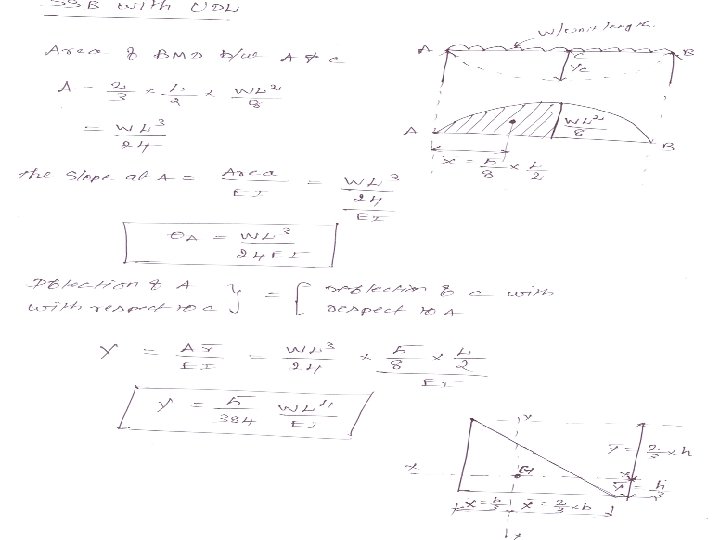 SSB with UDL
Area of BMD b/w A & C
A = 2/3 × L/2 × WL²/8
= WL³/24
The slope at A = Area/EI = WL³/24/EI
θA = WL³/24EI
Deflection of A with respect to C } = { Deflection of C with respect to A
Y = Ax̄/EI = WL³/24 × 5/8 × L/2/EI
Y = 5/384 WL⁴/EI
W/unit length.
A C B
Yc
WL²/8
A B
x̄ = 5/8 × L/2
y
ȳ = 2/3 × h
x G x
ȳ = h/3
x̄ = b/3 x̄ = 2/3 × b
y